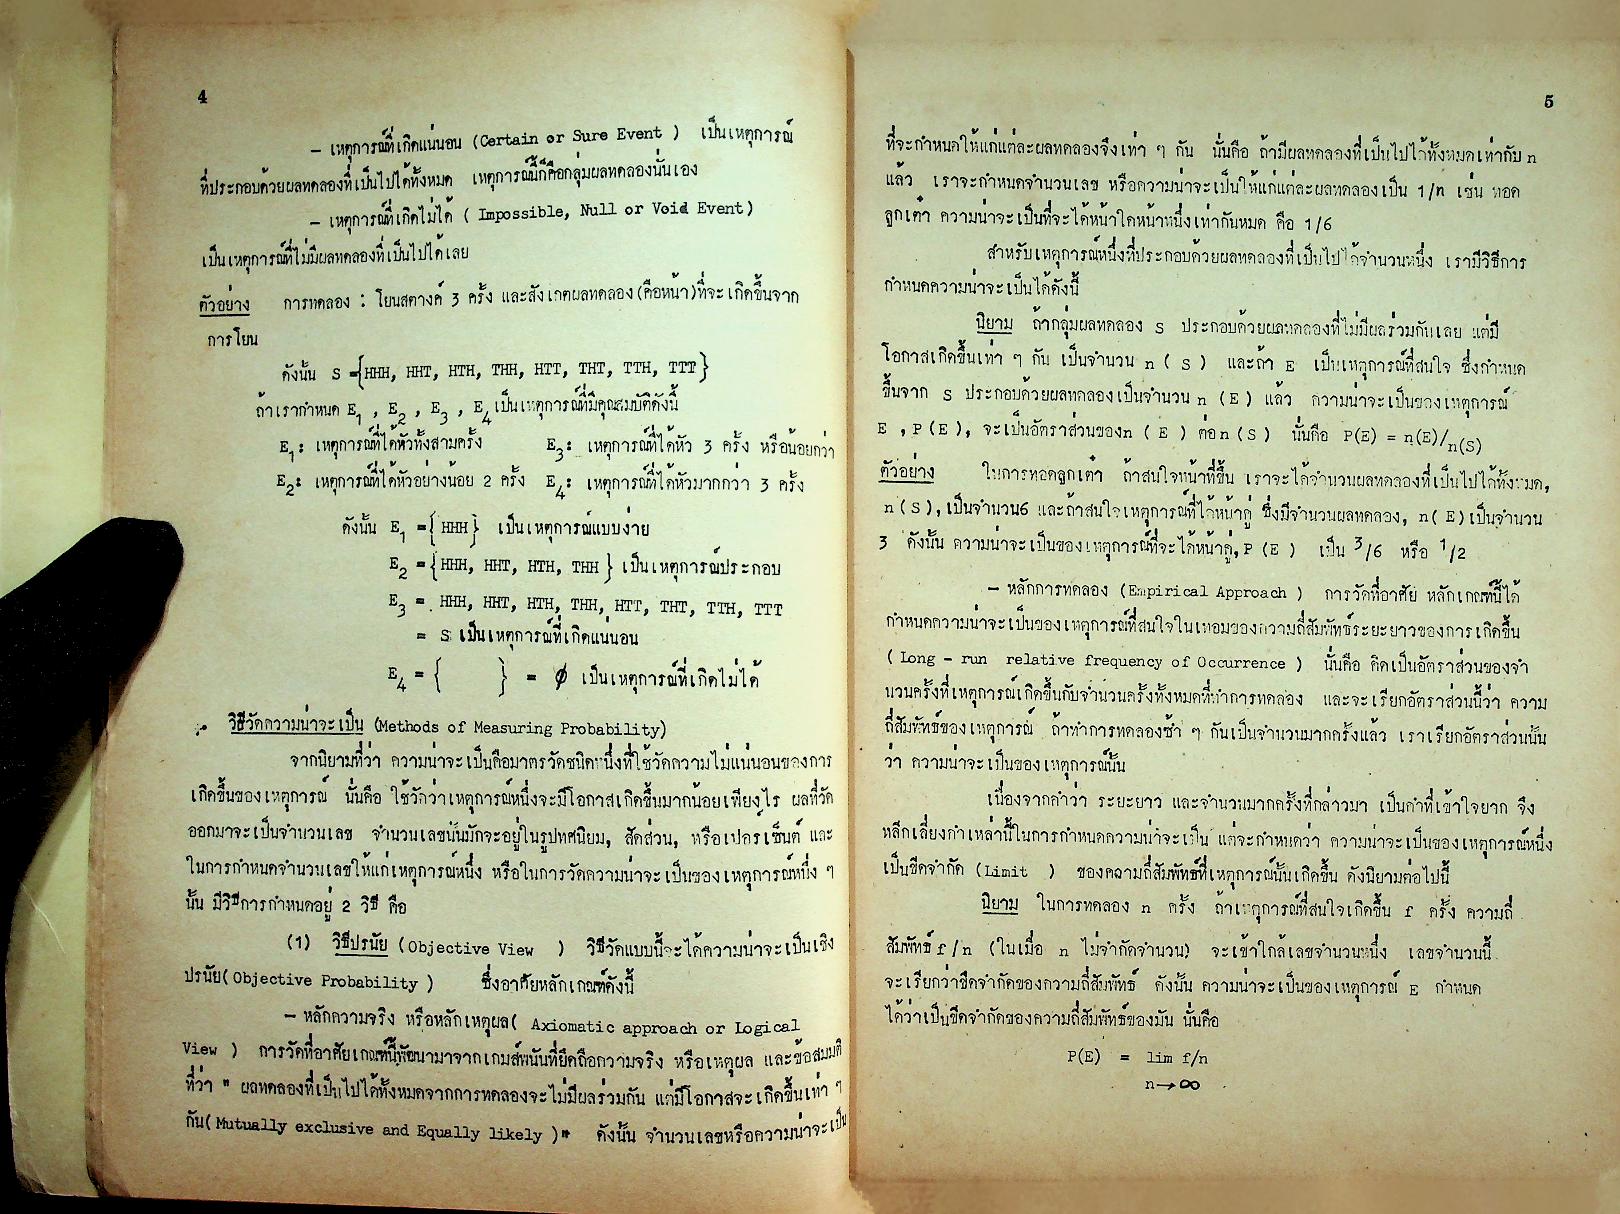 4
- เหตุการณ์ที่เกิดแน่นอน (Certain or Sure Event ) เป็นเหตุการณ์
ที่ประกอบด้วยผลทดลองที่เป็นไปได้ทั้งหมด เหตุการณ์นี้ก็คือกลุ่มผลทดลองนั่นเอง
- เหตุการณ์ที่เกิดไม่ได้ ( Impossible, Null or Void Event)
เป็นเหตุการณ์ที่ไม่มีผลทดลองที่เป็นไปได้เลย
ตัวอย่าง การทดลอง : โยนสตางค์ 3 ครั้ง และสังเกตผลทดลอง(คือหน้า)ที่จะเกิดขึ้นจาก
การโยน
ดังนั้น S ={HHH, HHT, HTH, THH, HTT, THT, TTH, TTT}
ถ้าเรากำหนด E1 , E2 , E3 , E4 เป็นเหตุการณ์ที่มีคุณสมบัติดังนี้
E1: เหตุการณ์ที่ได้หัวทั้งสามครั้ง E3: เหตุการณ์ที่ได้หัว 3 ครั้ง หรือน้อยกว่า
E2: เหตุการณ์ที่ได้หัวอย่างน้อย 2 ครั้ง E4: เหตุการณ์ที่ได้หัวมากกว่า 3 ครั้ง
ดังนั้น E1 ={HHH} เป็นเหตุการณ์แบบง่าย
E2 ={HHH, HHT, HTH, THH } เป็นเหตุการณ์ประกอบ
E3 = HHH, HHT, HTH, THH, HTT, THT, TTH, TTT
= S เป็นเหตุการณ์ที่เกิดแน่นอน
E4 = { } = ∅ เป็นเหตุการณ์ที่เกิดไม่ได้
วิธีวัดความน่าจะเป็น (Methods of Measuring Probability)
จากนิยามที่ว่า ความน่าจะเป็นคือมาตรวัดชนิดหนึ่งที่ใช้วัดความไม่แน่นอนของการ
เกิดขึ้นของเหตุการณ์ นั่นคือ ใช้วัดว่าเหตุการณ์หนึ่งจะมีโอกาสเกิดขึ้นมากน้อยเพียงไร ผลที่วัด
ออกมาจะเป็นจำนวนเลข จำนวนเลขนั้นมักจะอยู่ในรูปทศนิยม, สัดส่วน, หรือเปอร์เซ็นต์ และ
ในการกำหนดจำนวนเลขให้แก่เหตุการณ์หนึ่ง หรือในการวัดความน่าจะเป็นของเหตุการณ์หนึ่ง ๆ
นั้น มีวิธีการกำหนดอยู่ 2 วิธี คือ
(1) วิธีปรนัย (Objective View ) วิธีวัดแบบนี้จะได้ความน่าจะเป็นเชิง
ปรนัย(Objective Probability ) ซึ่งอาศัยหลักเกณฑ์ดังนี้
- หลักความจริง หรือหลักเหตุผล( Axiomatic approach or Logical
View ) การวัดที่อาศัยเกณฑ์นี้พัฒนามาจากเกมส์พนันที่ยึดถือความจริง หรือเหตุผล และข้อสมมติ
ที่ว่า " ผลทดลองที่เป็นไปได้ทั้งหมดจากการทดลองจะไม่มีผลร่วมกัน แต่มีโอกาสจะเกิดขึ้นเท่า ๆ
กัน(Mutually exclusive and Equally likely )" ดังนั้น จำนวนเลขหรือความน่าจะเป็น
5
ที่จะกำหนดให้แก่แต่ละผลทดลองจึงเท่า ๆ กัน นั่นคือ ถ้ามีผลทดลองที่เป็นไปได้ทั้งหมดเท่ากับ n
แล้ว เราจะกำหนดจำนวนเลข หรือความน่าจะเป็นให้แก่แต่ละผลทดลองเป็น 1/n เช่น ทอด
ลูกเต๋า ความน่าจะเป็นที่จะได้หน้าใดหน้าหนึ่งเท่ากันหมด คือ 1/6
สำหรับเหตุการณ์หนึ่งที่ประกอบด้วยผลทดลองที่เป็นไปได้จำนวนหนึ่ง เรามีวิธีการ
กำหนดความน่าจะเป็นได้ดังนี้
นิยาม ถ้ากลุ่มผลทดลอง S ประกอบด้วยผลทดลองที่ไม่มีผลร่วมกันเลย แต่มี
โอกาสเกิดขึ้นเท่า ๆ กัน เป็นจำนวน n ( S ) และถ้า E เป็นเหตุการณ์ที่สนใจ ซึ่งกำหนด
ขึ้นจาก S ประกอบด้วยผลทดลองเป็นจำนวน n (E ) แล้ว ความน่าจะเป็นของเหตุการณ์
E , P (E ), จะเป็นอัตราส่วนของn ( E ) ต่อ n ( S ) นั่นคือ P(E) = n(E)/n(S)
ตัวอย่าง ในการทอดลูกเต๋า ถ้าสนใจหน้าที่ขึ้น เราจะได้จำนวนผลทดลองที่เป็นไปได้ทั้งหมด,
n (S ), เป็นจำนวน6 และถ้าสนใจเหตุการณ์ที่ได้หน้าคู่ ซึ่งมีจำนวนผลทดลอง, n( E)เป็นจำนวน
3 ดังนั้น ความน่าจะเป็นของเหตุการณ์ที่จะได้หน้าคู่, P (E ) เป็น 3/6 หรือ 1/2
- หลักการทดลอง (Empirical Approach ) การวัดที่อาศัย หลักเกณฑ์นี้ได้
กำหนดความน่าจะเป็นของเหตุการณ์ที่สนใจในเทอมของความถี่สัมพัทธ์ระยะยาวของการเกิดขึ้น
( Long - run relative frequency of Occurrence ) นั่นคือ คิดเป็นอัตราส่วนของจำ
นวนครั้งที่เหตุการณ์เกิดขึ้นกับจำนวนครั้งทั้งหมดที่ทำการทดลอง และจะเรียกอัตราส่วนนี้ว่า ความ
ถี่สัมพัทธ์ของเหตุการณ์ ถ้าทำการทดลองซ้ำ ๆ กันเป็นจำนวนมากครั้งแล้ว เราเรียกอัตราส่วนนั้น
ว่า ความน่าจะเป็นของเหตุการณ์นั้น
เนื่องจากคำว่า ระยะยาว และจำนวนมากครั้งที่กล่าวมา เป็นคำที่เข้าใจยาก จึง
หลีกเลี่ยงคำเหล่านี้ในการกำหนดความน่าจะเป็น แต่จะกำหนดว่า ความน่าจะเป็นของเหตุการณ์หนึ่ง
เป็นขีดจำกัด (Limit ) ของความถี่สัมพัทธ์ที่เหตุการณ์นั้นเกิดขึ้น ดังนิยามต่อไปนี้
นิยาม ในการทดลอง n ครั้ง ถ้าเหตุการณ์ที่สนใจเกิดขึ้น f ครั้ง ความถี่
สัมพัทธ์ f/n (ในเมื่อ n ไม่จำกัดจำนวน) จะเข้าใกล้เลขจำนวนหนึ่ง เลขจำนวนนี้
จะเรียกว่าขีดจำกัดของความถี่สัมพัทธ์ ดังนั้น ความน่าจะเป็นของเหตุการณ์ E กำหนด
ได้ว่าเป็นขีดจำกัดของความถี่สัมพัทธ์ของมัน นั่นคือ
P(E) = lim f/n
n→∞